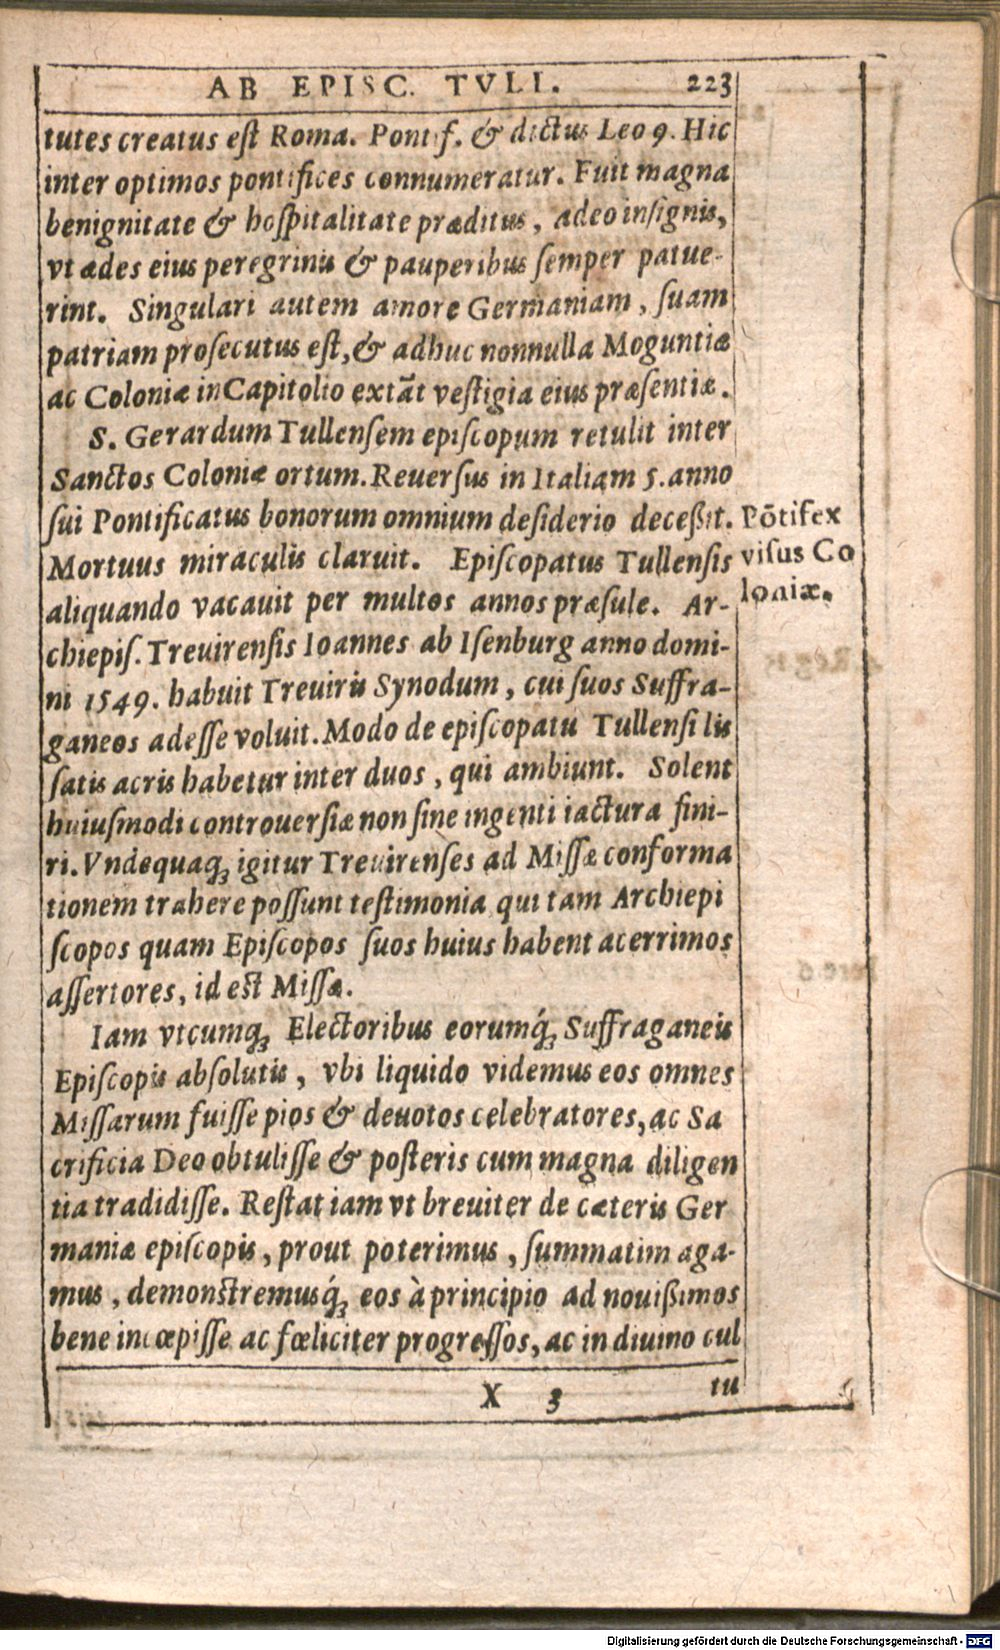 AB EPISC. TVLI. 223
tutes creatus eſt Roma. Pontif. & dictus Leo 9. Hic
inter optimos pontifices connumeratur. Fuit magna
benignitate & hoſpitalitate præditus, adeo inſignis,
vt ædes eius peregrinis & pauperibus ſemper patue-
rint. Singulari autem amore Germaniam, ſuam
patriam proſecutus eſt, & adhuc nonnulla Moguntiæ
ac Coloniæ in Capitolio extāt veſtigia eius præſentiæ.
S. Gerardum Tullenſem epiſcopum retulit inter
Sanctos Coloniæ ortum. Reuerſus in Italiam 5. anno
ſui Pontificatus bonorum omnium deſiderio deceßit.
Mortuus miraculis claruit. Epiſcopatus Tullenſis
aliquando vacauit per multos annos præſule. Ar-
chiepiſ. Treuirenſis Ioannes ab Iſenburg anno domi-
ni 1549. habuit Treuiris Synodum, cui ſuos Suffra-
ganeos adeſſe voluit. Modo de epiſcopatu Tullenſi lis
ſatis acris habetur inter duos, qui ambiunt. Solent
huiuſmodi controuerſiæ non ſine ingenti iactura fini-
ri. Vndequaq; igitur Treuirenſes ad Miſſæ conforma
tionem trahere poſſunt teſtimonia qui tam Archiepi
ſcopos quam Epiſcopos ſuos huius habent acerrimos
aſſertores, id est Miſſæ.
Iam vtcumq; Electoribus eorumq́; Suffraganeis
Epiſcopis abſolutis, vbi liquido videmus eos omnes
Miſſarum fuiſſe pios & deuotos celebratores, ac Sa
crificia Deo obtuliſſe & poſteris cum magna diligen
tia tradidiſſe. Reſtat iam vt breuiter de cæteris Ger
maniæ epiſcopis, prout poterimus, ſummatim aga-
mus, demonſtremusq́; eos à principio ad nouißimos
bene incœpiſſe ac fœliciter progreſſos, ac in diuino cul
X 3 tu
Pōtifex
viſus Co
loniæ.
Digitalisierung gefördert durch die Deutsche Forschungsgemeinschaft - DFG